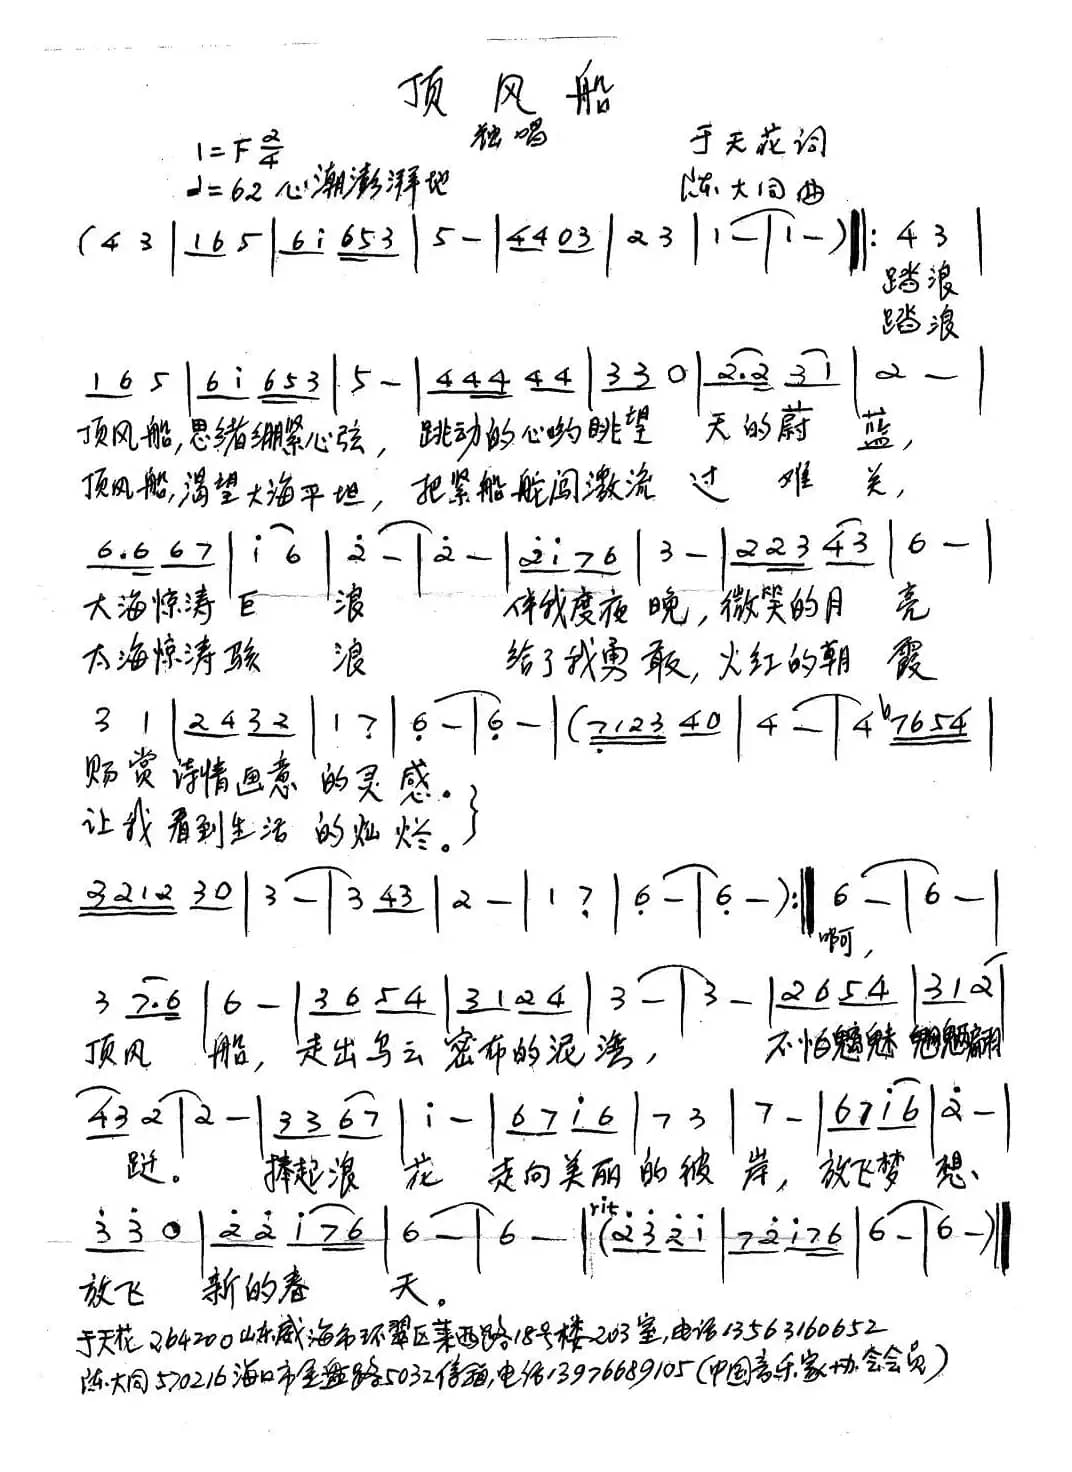 顶风船
独唱
1=F 2/4
于天花词
♩=62 心潮澎湃地
陈大同曲
(4 3 | 1 6 5 | 6 i 6 5 3 | 5 – | 4 4 0 3 | 2 3 | 1 – | 1 – ) ‖: 4 3 |
踏浪
踏浪
1 6 5 | 6 i 6 5 3 | 5 – | 4 4 4 4 4 | 3 3 0 | 2. 2 3 1 | 2 – |
顶风船,思绪绷紧心弦, 跳动的心哟眺望 天的蔚 蓝,
顶风船,渴望大海平坦, 把紧船舵闯激流 过 难 关,
6. 6 6 7 | i 6 | 2̇ – | 2̇ – | 2̇ i 7 6 | 3 – | 2 2 3 4 3 | 6 – |
大海惊涛 巨 浪 伴我度夜 晚, 微笑的月 亮
大海惊涛 骇 浪 给了我勇 敢, 火红的朝 霞
3 1 | 2 4 3 2 | 1 7̣ | 6̣ – | 6̣ – | (7̣ 1 2 3 4 0 | 4 – | 4 ♭7 6 5 4 |
赐赏诗情画意 的灵 感。
让我看到生活 的灿 烂。
3 2 1 2 3 0 | 3 – | 3 4 3 | 2 – | 1 7̣ | 6̣ – | 6̣ – ) :‖ 6 – | 6 – |
啊,
3 7. 6 | 6 – | 3 6 5 4 | 3 1 2 4 | 3 – | 3 – | 2 6 5 4 | 3 1 2 |
顶风 船, 走出乌云 密布的泥 湾, 不怕魑魅 魍魉翩
4 3 2 | 2 – | 3 3 6 7 | i – | 6 7 i 6 | 7 3 | 7 – | 6 7 i 6 | 2̇ – |
跹。 捧起浪 花 走向美丽 的彼 岸, 放飞梦 想、
3̇ 3̇ 0 | 2̇ 2̇ i 7 6 | 6 – | 6 – | rit (2̇ 3̇ 2̇ i | 7 2̇ i 7 6 | 6 – | 6 – ) ‖
放飞 新的春 天。
于天花 264200山东威海市环翠区莱西路18号楼203室,电话13563160652
陈大同570216海口市金盘路5032信箱,电话13976689105(中国音乐家协会会员)